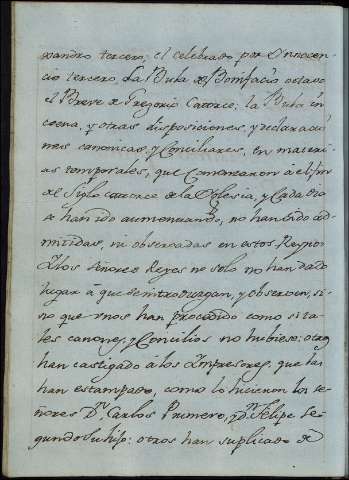 xandro tercero; el celebrado por Innocen-
cio tercero La Bula de Bonifacio octavo
el Breve de Gregorio Catorce; la Bula in
coena, y otras disposiciones, y declaracio
nes canonicas, y Conciliares, en mate-rias
temporales, que comenzaron a el fin
del Siglo catorce de la Yglesia, y Cada dia
se han ido aumentando, no han sido ad-
mitidas, ni observadas en estos Reynos
Y los Señores Reyes no solo no han dado
lugar á que se introduzgan, y observen, si-
no que unos han procedido como si ta-
les canones, y Concilios no hubiese: otros
han castigado á los Ympresores, que las
han estampado, como lo hicieron los se-
ñores Dn. Carlos Primero, y Dn. Felipe Se-
gundo Su hijo: otros han suplicado de